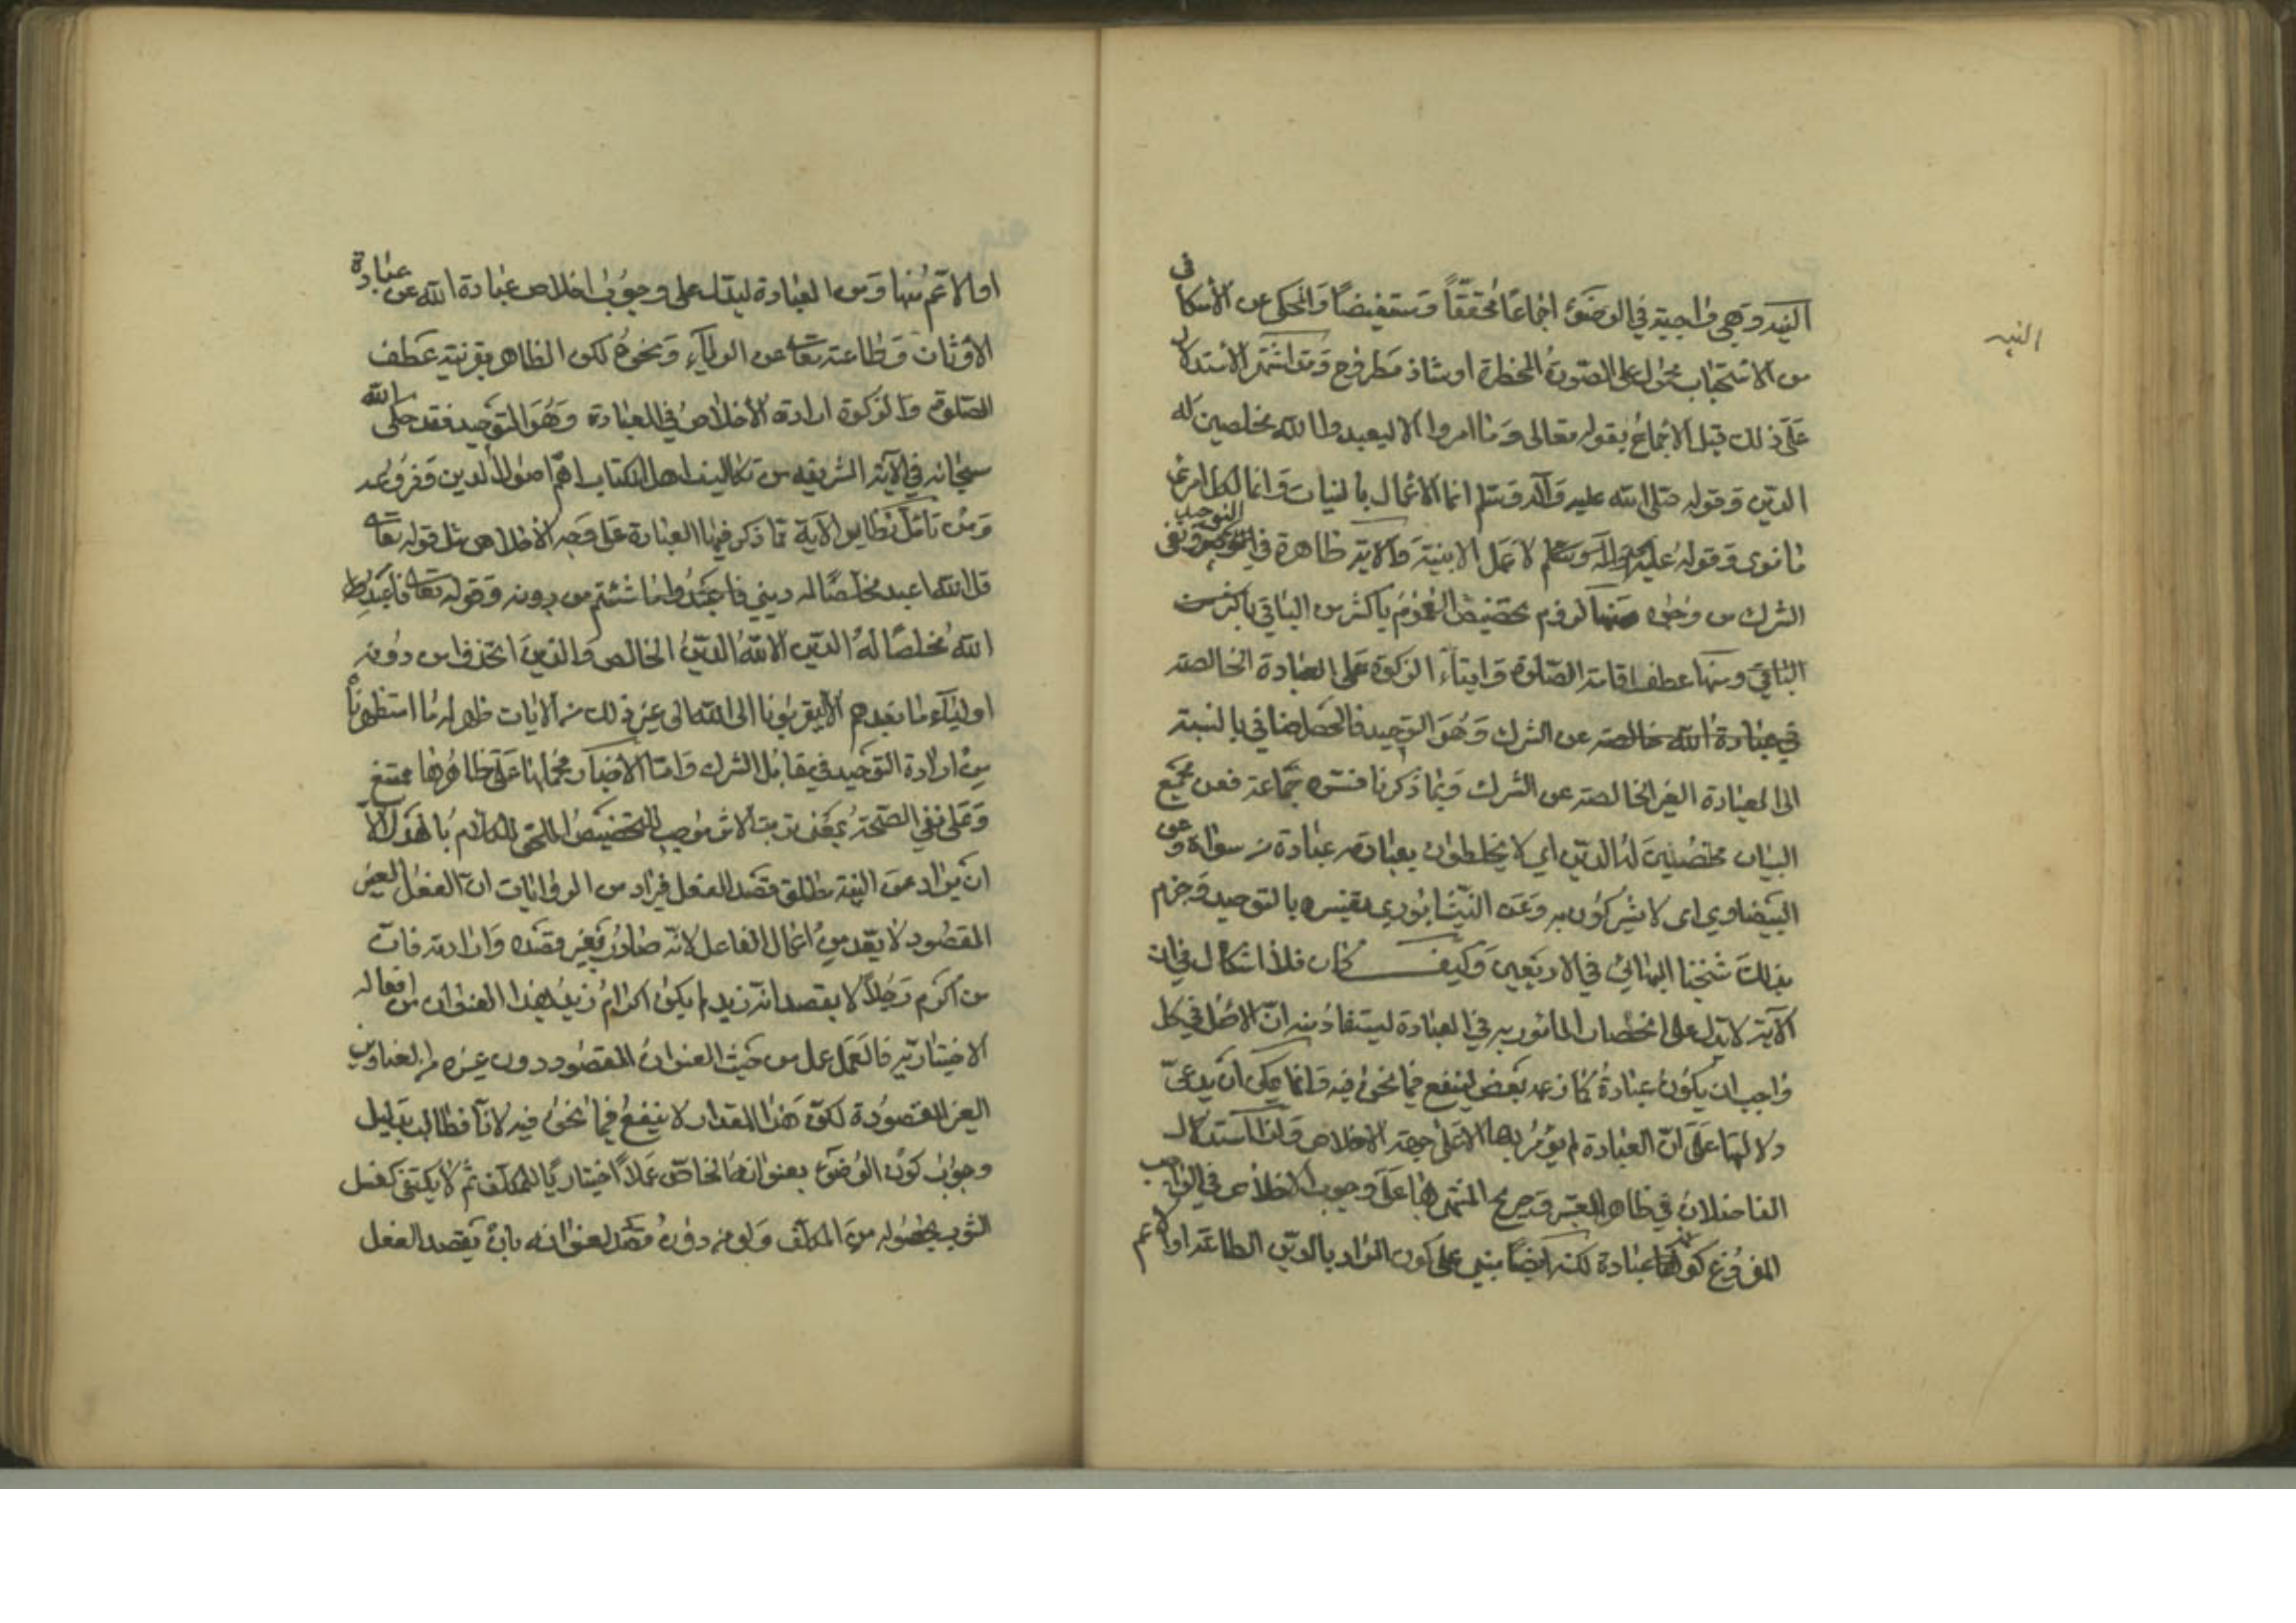 النيه
النيه وهي واجبة في الوضوء اجماعا محققا ومستفيضا والمحكي عن الاسكافي
من الاستحباب محمول على الصورة المخطرة او شاذ مطروح وقد اشتهر الاستدلال
على ذلك قبل الاجماع بقوله تعالى وما امروا الا ليعبدوا الله مخلصين له
الدين وقوله صلى الله عليه وآله وسلم انما الاعمال بالنيات وانما لكل امرئ
ما نوى وقوله عليه وآله وسلم لا عمل الا بنية والاية ظاهرة في التوحيد ونفى
الشرك من وجوه منها لزوم تخصيص العموم باكثر من الباقي
الباقي ومنها عطف اقامة الصلوة وايتاء الزكوة على العبادة الخالصة
في عبادة الله خالصة عن الشرك وهو التوحيد فالحصر اضافي بالنسبة
الى العبادة الغير الخالصة عن الشرك وبما ذكرنا فسره جماعة فعن مجمع
البيان مخلصين له الدين اي لا يخلطون بعبادته عبادة من سواه وعن
البيضاوي اى لا يشركون به وعن النيشابوري تفسيره بالتوحيد وجزم
بذلك شيخنا البهائي في الاربعين وكيف كان فلا اشكال في ان
الآية لا تدل على انحصار المأمور به في العبادة ليستفاد منه ان الاصل في كل
واجب ان يكون عبادة كما زعمه بعض لينفع فيما نحن فيه وانما يمكن ان يدعى
دلالتها على ان العبادة لم يؤمر بها الا على جهة الاخلاص ولذا استدل
الفاضلان في ظاهر المعتبر وصريح المنتهى بها على وجوب الاخلاص في الواجب
المفروغ كونه عبادة لكنه ايضا مبني على كون المراد بالدين الطاعة او الاعم
او الاعم منها ومن العبادة ليدل على وجوب اخلاص عبادة الله عن عبادة
الاوثان وطاعته تعالى عن الرياء ونحوه لكن الظاهر بقرنية عطف
الصلوة والزكوة ارادة الاخلاص في العبادة وهو التوحيد فقد حكى الله
سبحانه في الآية الشريفه من تكاليف اهل الكتاب اهم اصول الدين وفروعه
ومن تامل نظاير الآية مما ذكر فيها العبادة على وجه الاخلاص مثل قوله تعالى
قل الله اعبد مخلصا له ديني فاعبدوا ما شئتم من دونه وقوله تعالى فاعبد
الله مخلصا له الدين الا لله الدين الخالص والذين اتخذوا من دونه
اولياء ما نعبدهم الا ليقربونا الى الله الى غير ذلك من الايات ظهر له ما استظهرنا
من ارادة التوحيد في مقابل الشرك واما الاخبار فحملها على ظاهرها ممتنع
وعلى نفي الصحة بمعنى ترتب الاثر موجب للتخصيص الملحق للكلام بالهزل الا
ان يراد من النية مطلق قصد الفعل فيراد من الروايات ان الفعل الغير
المقصود لا يعد من اعمال الفاعل لانه صادر بغير قصده وارادته فان
من اكرم رجلا لا بقصد انه زيد لم يكن اكرام زيد بهذا العنوان من افعاله
الاختيارية فالعمل عمل من حيث العنوان المقصود دون غيره من العناوين
الغير المقصودة لكن هذا المقدار لا ينفع فيما نحن فيه لانا نطالب بدليل
وجوب كون الوضوء بعنوانه الخاص عملا اختياريا للمكلف ثم لا يكتفى كغسل
الثوب بحصوله من المكلف ولو من دون قصد لعنوانه بان يقصد الفعل